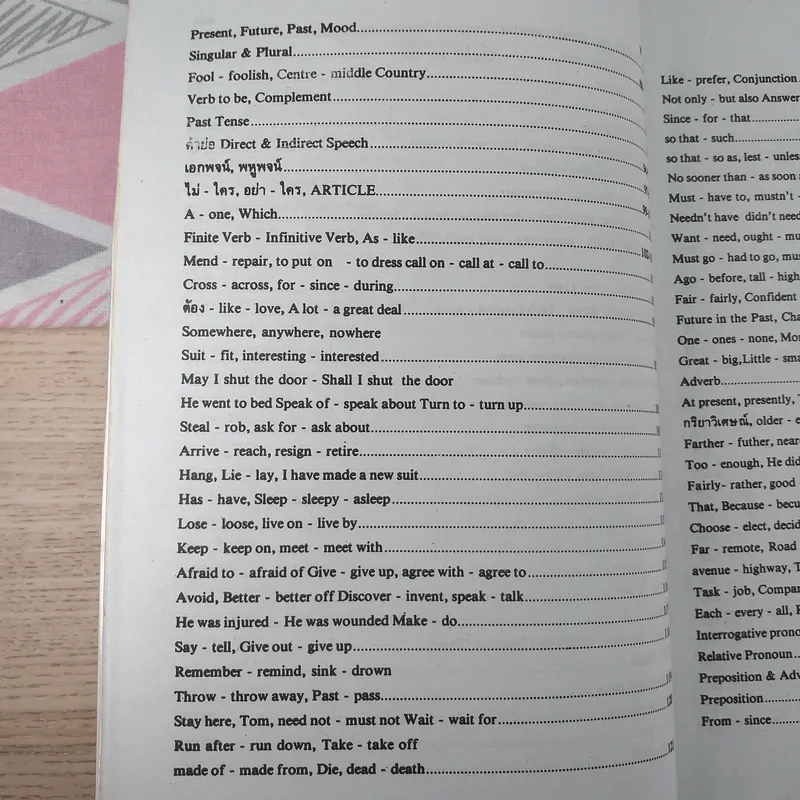 Present, Future, Past, Mood
Singular & Plural
Fool - foolish, Centre - middle Country
Verb to be, Complement
Past Tense
คำย่อ Direct & Indirect Speech
เอกพจน์, พหูพจน์
ไม่ - ใคร, อย่า - ใคร, ARTICLE
A - one, Which
Finite Verb - Infinitive Verb, As - like
Mend - repair, to put on - to dress call on - call at - call to
Cross - across, for - since - during
ต้อง - like - love, A lot - a great deal
Somewhere, anywhere, nowhere
Suit - fit, interesting - interested
May I shut the door - Shall I shut the door
He went to bed Speak of - speak about Turn to - turn up
Steal - rob, ask for - ask about
Arrive - reach, resign - retire
Hang, Lie - lay, I have made a new suit
Has - have, Sleep - sleepy - asleep
Lose - loose, live on - live by
Keep - keep on, meet - meet with
Afraid to - afraid of Give - give up, agree with - agree to
Avoid, Better - better off Discover - invent, speak - talk
He was injured - He was wounded Make - do
Say - tell, Give out - give up
Remember - remind, sink - drown
Throw - throw away, Past - pass
Stay here, Tom, need not - must not Wait - wait for
Run after - run down, Take - take off
made of - made from, Die, dead - death
Like - prefer, Conjunction
Not only - but also Answer
Since - for - that
so that - such
so that - so as, lest -
No sooner than - as soon
Must - have to, mustn't -
Needn't have didn't need
Want - need, ought -
Must go - had to go,
Ago - before, tall - high
Fair - fairly, Confident
Future in the Past,
One - ones - none,
Great - big, Little -
Adverb
At present, presently,
กริยาวิเศษณ์, older -
Farther - futher,
Too - enough, He did
Fairly - rather, good
That, Because -
Choose - elect,
Far - remote, Road
avenue - highway,
Task - job,
Each - every - all,
Interrogative
Relative Pronoun
Preposition &
Preposition
From - since